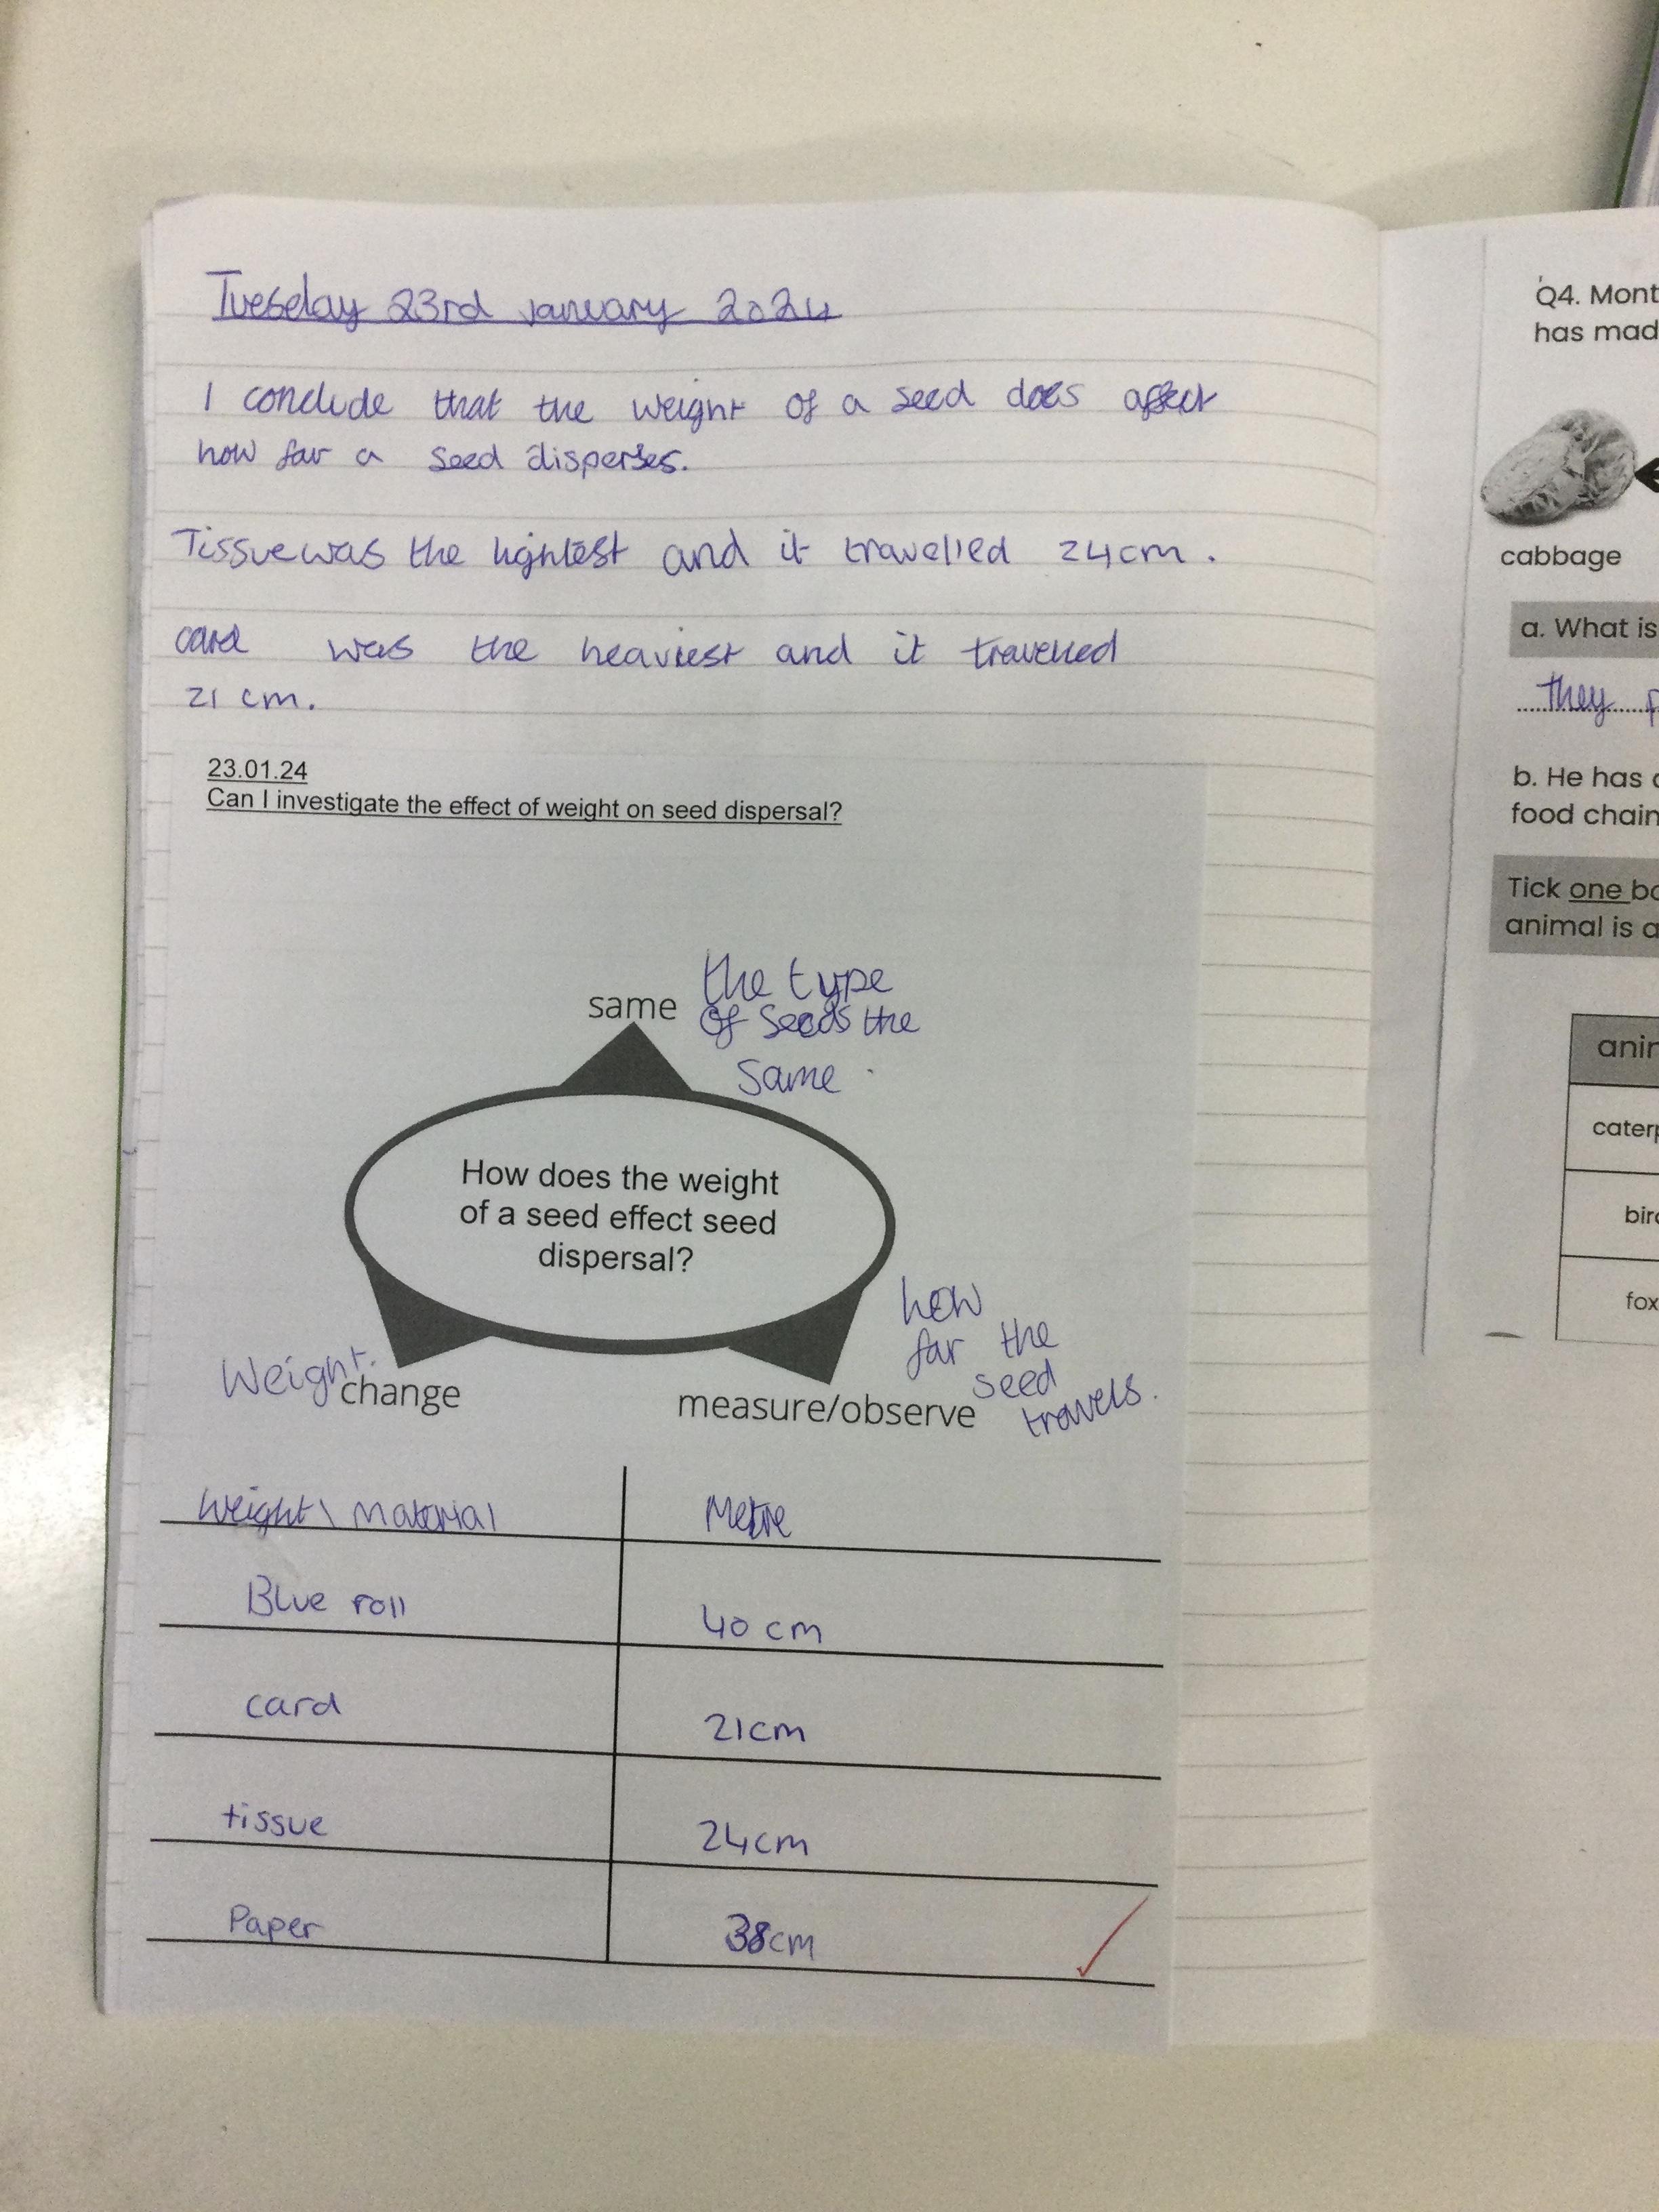 Tuesday 23rd january 2024
I conclude that the weight of a seed does affect
how far a seed disperses.
Tissue was the lightest and it travelled 24cm.
card was the heaviest and it travelled
21 cm.
23.01.24
Can I investigate the effect of weight on seed dispersal?
same
the type
of seeds the
same
How does the weight
of a seed effect seed
dispersal?
Weight.
change
measure/observe
how
far the
seed
travels.
Weight\ Material Metre
Blue roll 40 cm
card 21cm
tissue 24cm
Paper 38cm
Q4. Mont
has mad
cabbage
a. What is
they p
b. He has
food chain
Tick one bo
animal is a
anir
caterp
bird
fox